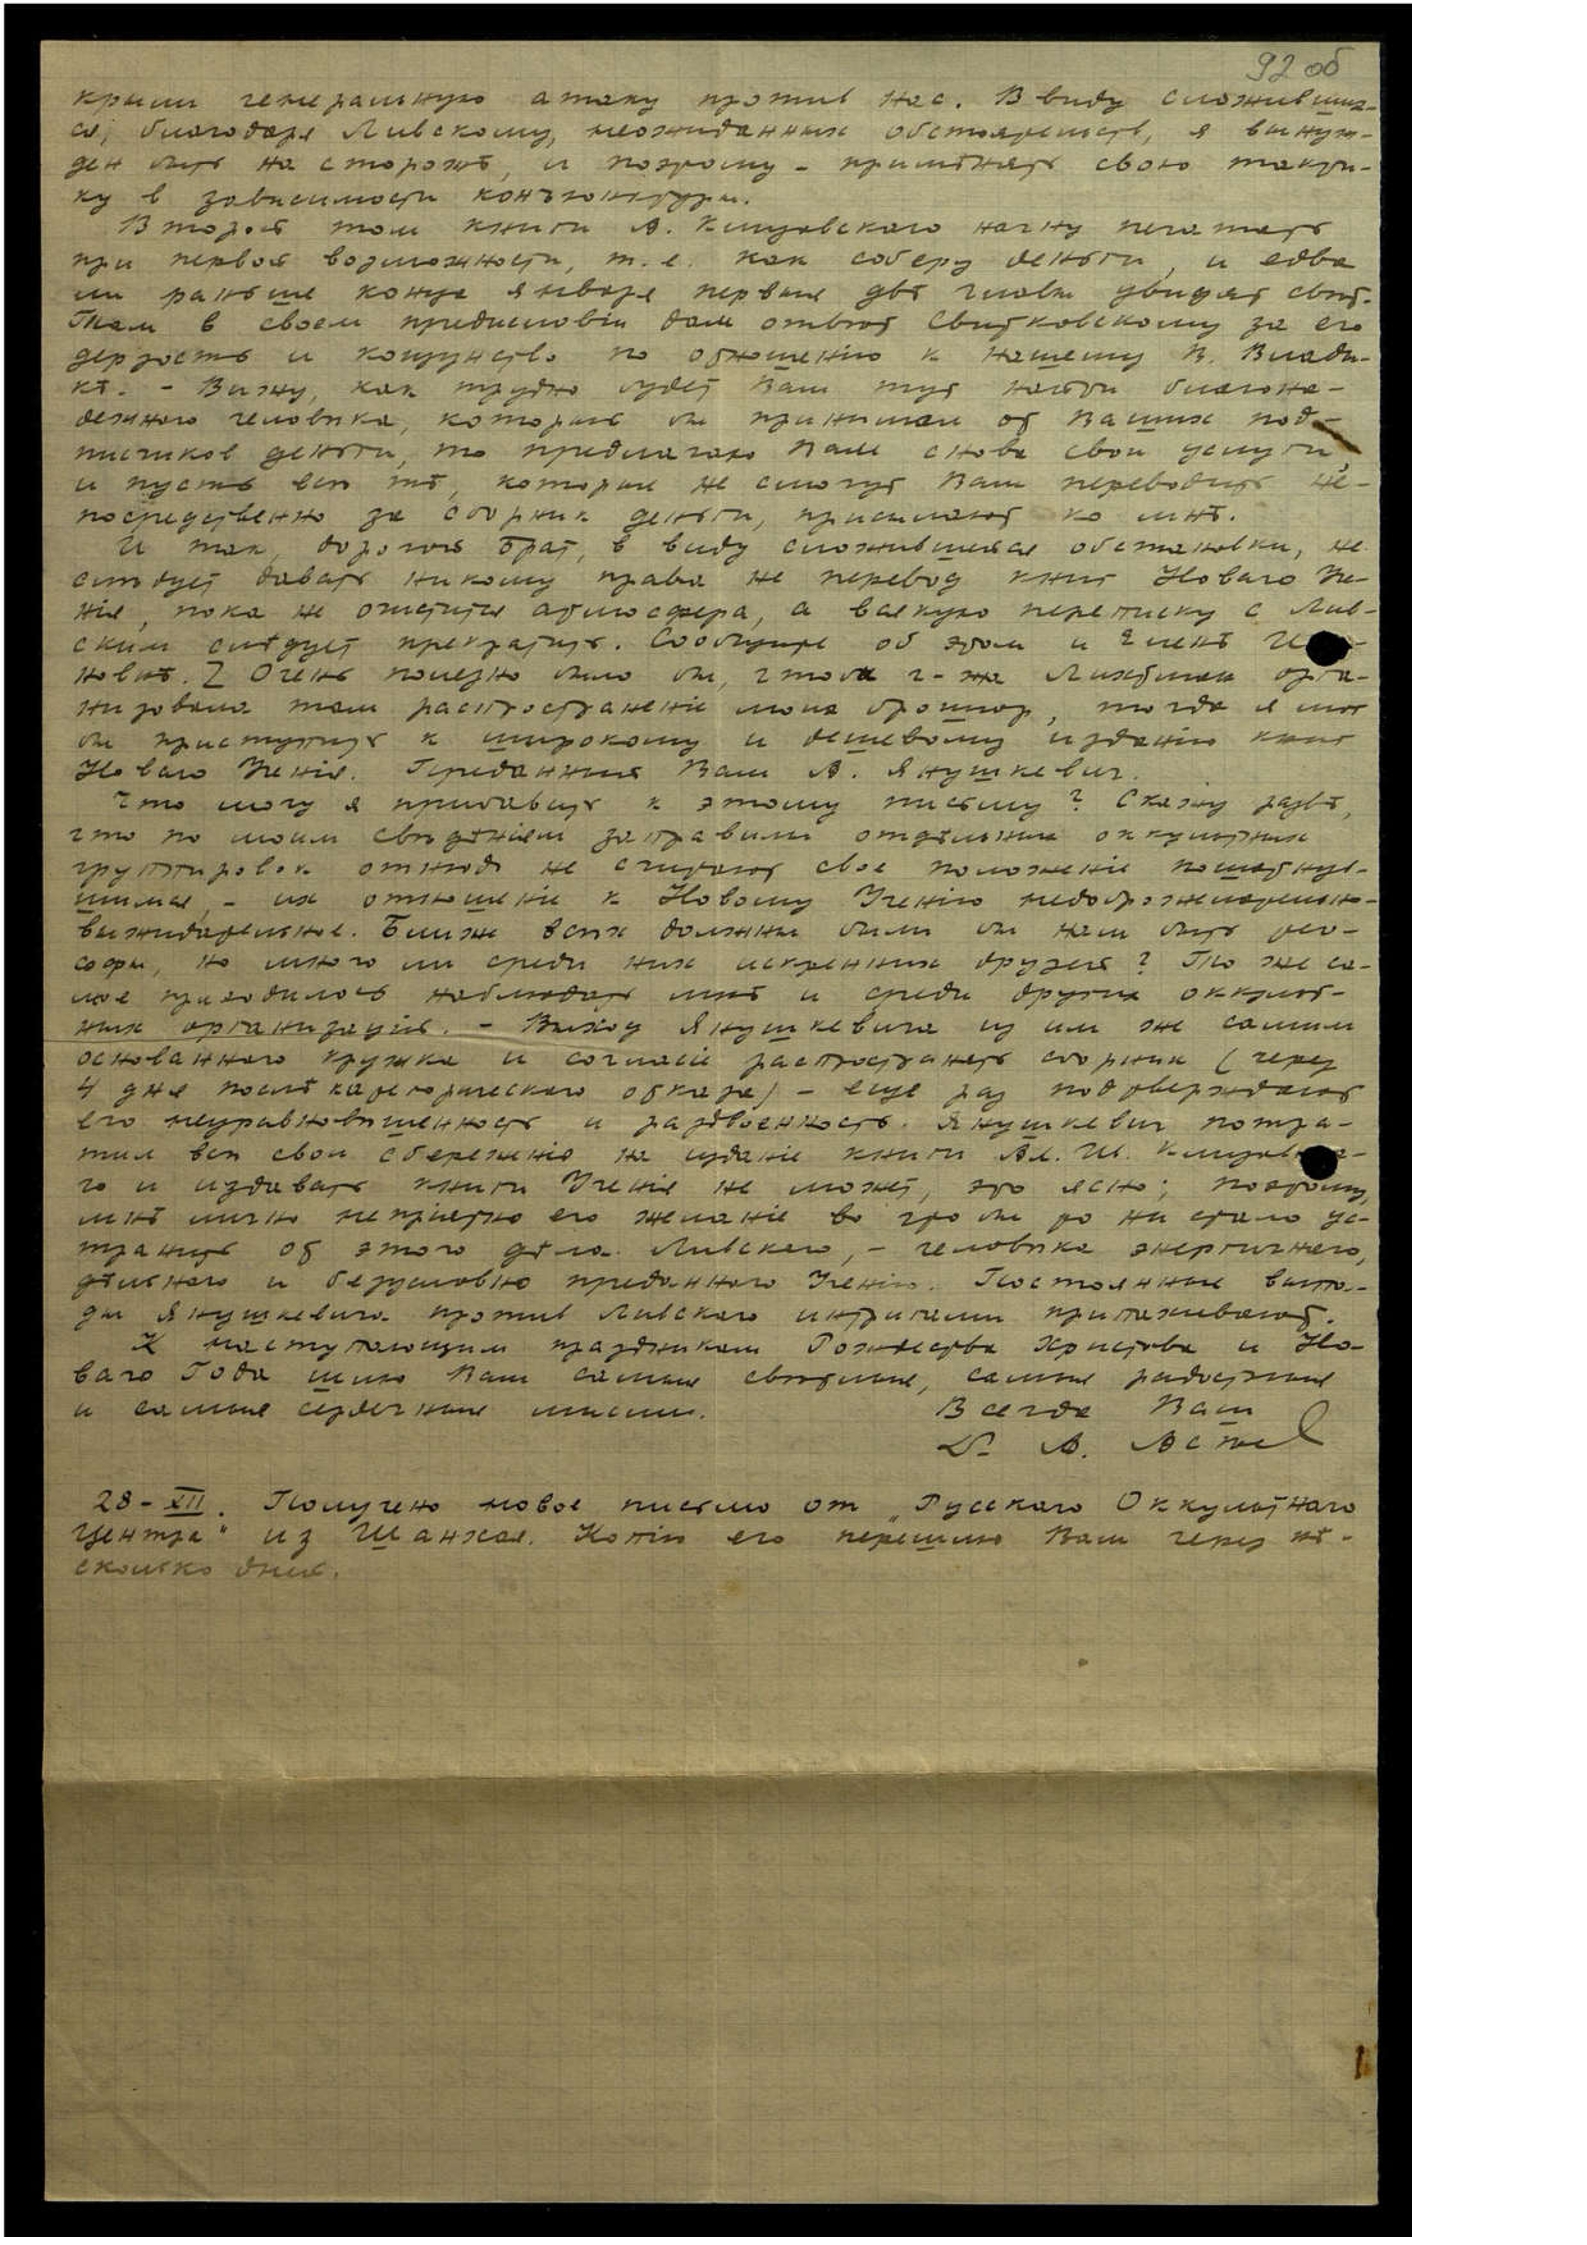 92 об
крыли генеральную атаку против нас. В виду сложивших-
ся, благодаря Ливскому, неожиданных обстоятельств, я вынуж-
ден быть на сторожѣ, и поэтому - примѣнять свою такти-
ку в зависимости конъюнктуры.
Второй том книги А. Клизовскаго начну печатать
при первой возможности, т.е. как соберу деньги, и едва
ли раньше конца января первые двѣ главы увидят свѣт.
Там в своем предисловіи дам отвѣт Свитковскому за его
дерзость и кощунство по отношенію к нашему В. Влады-
кѣ. - Вижу, как трудно будет Вам тут найти благона-
дежнаго человѣка, который бы принимал от Ваших под-
писчиков деньги, то предлагаю Вам снова свои услуги,
и пусть всѣ тѣ, которые не смогут Вам переводить не-
посредственно за сборник деньги, присылают ко мнѣ.
И так, дорогой брат, в виду сложившейся обстановки, не
слѣдует давать никому права не перевод книг Новаго Уче-
нія, пока не очистится атмосфера, а всякую переписку с Лив-
ским слѣдует прекратить. Сообщите об этом и Еленѣ
новнѣ. Очень полезно было бы, чтобы г-жа орга-
низовала там распространеніе моих брошюр, тогда я мог
бы приступить к широкому и дешевому изданію книг
Новаго Ученія. Преданный Вам А. Янушкевич.
Что могу я прибавить к этому письму? Скажу развѣ,
что по моим свѣдѣніям заправилы отдѣльных оккультных
группировок отнюдь не считают свое положеніе пошатнув-
шимся, - их отношеніе к Новому Ученію недоброжелательно-
выжидательное. Ближе всѣх должны были бы нам быть тео-
софы, но много ли среди них искренних друзей? То же са-
мое приходилось наблюдать мнѣ и среди других оккульт-
ных организацій. - Выход Янушкевича из им же самим
основаннаго кружка и согласіе распространять сборник (через
4 дня послѣ категорическаго отказа) - еще раз подтверждают
его неуравновѣшенность и раздвоенность. Янушкевич потра-
тил всѣ свои сбереженія на изданіе книги Ал. Ив.
го и издавать книги Ученія не может, это ясно; поэтому,
мнѣ лично непріятно его желаніе во что бы то ни стало ус-
транить от этого дѣла Ливскаго, - человѣка энергичнаго,
дѣльнаго и безусловно преданнаго Ученію. Постоянные выпа-
ды Янушкевича против Ливскаго интригами припахивают.
К наступающим праздникам Рождества Христова и Но-
ваго Года шлю Вам самые свѣтлые, самые радостные
и самые сердечные мысли. Всегда Ваш
Dr А. Асѣев
28-XII. Получено новое письмо от „Русскаго Оккультнаго
Центра" из Шанхая. Копію его перешлю Вам через нѣ-
сколько дней.